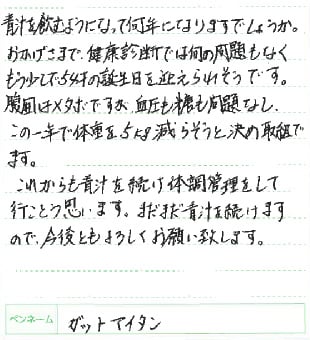 青汁を飲むようになって何年になりますでしょうか。
おかげさまで、健康診断では何の問題もなく
もう少しで54才の誕生日を迎えられそうです。
腹囲はメタボですが、血圧も糖も問題なし。
この一年で体重を5kg減らそうと決め取組で
ます。
これからも青汁を続け体調管理をして
行ことう思います。まだまだ青汁を続けます
ので、今後ともよろしくお願い致します。
ペンネーム ガットアイタン